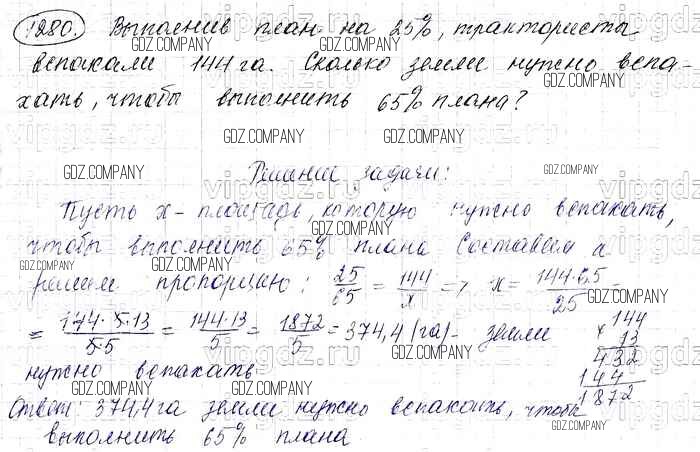 1280. Выполнив план на 25%, трактористы
вспахали 144 га. Сколько земли нужно вспа-
хать, чтобы выполнить 65% плана?
Решение задачи:
Пусть x - площадь, которую нужно вспахать,
чтобы выполнить 65% плана. Составим и
решим пропорцию: 25/65 = 144/x => x = 144·65/25 =
= 144·5·13/5·5 = 144·13/5 = 1872/5 = 374,4 (га) - земли
нужно вспахать
144
× 13
432
144
1872
Ответ: 374,4 га земли нужно вспахать, чтобы
выполнить 65% плана
GDZ.COMPANY
vipgdz.ru